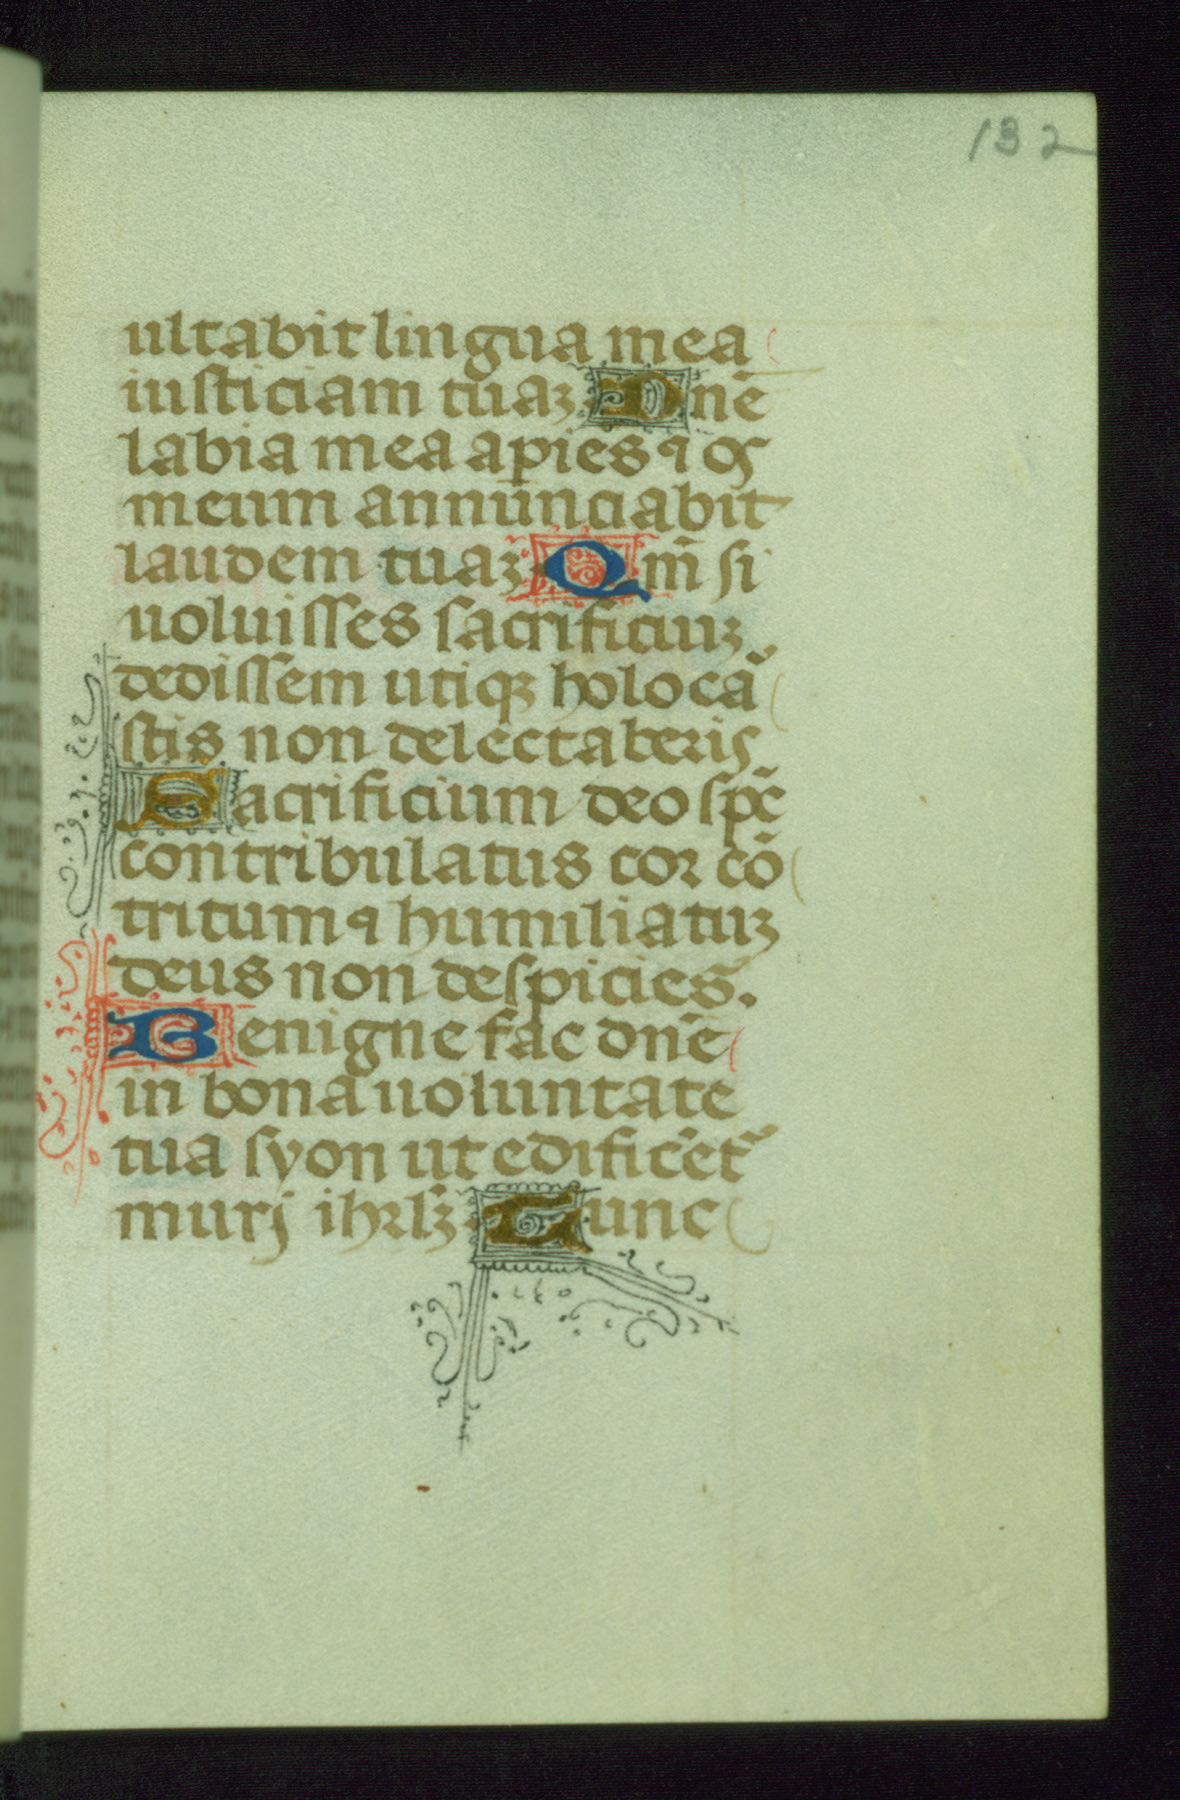 132
ultabit lingua mea
iusticiam tuaꝫ Dnē
labia mea apies ⁊ os
meum annunciabit
laudem tuaꝫ Qm̄ si
uoluisses sacrificiuꝫ
dedissem utiqꝫ holocā
stis non delectaberis
Sacrificium deo spc̄
contribulatus cor cō
tritum ⁊ humiliatuꝫ
deus non despicies.
Benigne fac dn̄e
in bona uoluntate
tua syon ut edificēt᷑
murj ihrlꝫ̄ Tunc